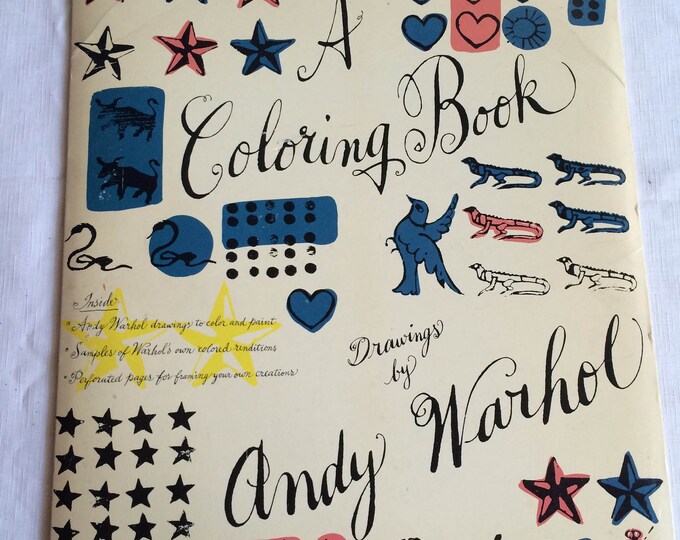 A
Coloring Book
Inside
• Andy Warhol drawings to color and paint
• Samples of Warhol's own colored renditions
• Perforated pages for framing your own creations
Drawings
by
Andy Warhol